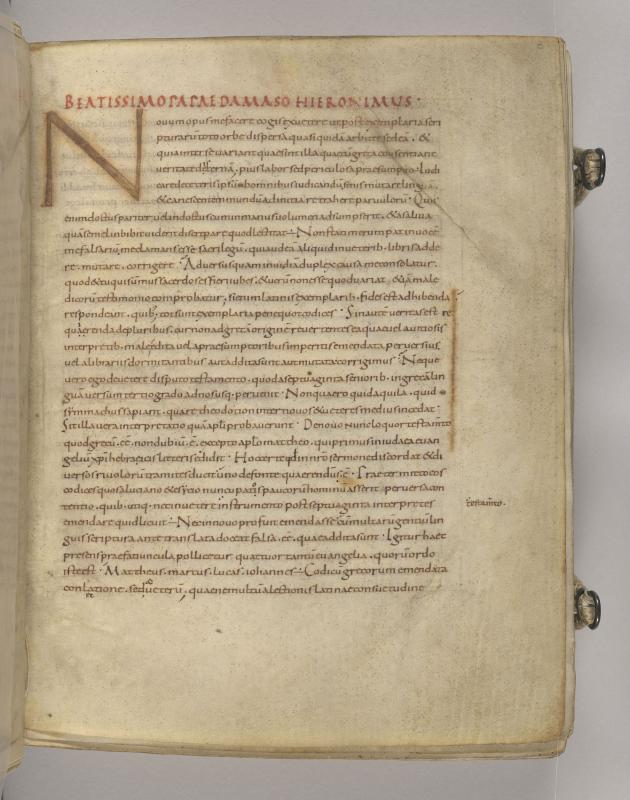 BEATISSIMO PAPAE DAMASO HIERONIMUS
Nouum opus me facere cogis ex uetere ut post exemplaria scri
pturarum toto orbe dispersa quasi quidā arbiter sedeā. &
quia inter se uariant quae sint illa quae cū greca consentiant
ueritate decernā. pius labor sed periculosa praesumptio. Iudi
care de ceteris ipsum ab omnibus iudicandū senis mutare linguā.
& canescentem mundū ad initia retrahere paruulorū. Quis
enim doctus pariter uel indoctus cum in manus uolumen adsumpserit. & a saliua
quā semel inbibit uiderit discrepare quod lectitat. Non statim erumpat in uocē
me falsariū me clamans esse sacrilegū. qui audeā aliquid in ueterib. libris adde
re. mutare. corrigere. Aduersus quam inuidiā duplex causa me consolatur.
quod & tu qui summus sacerdos es fieri iubes. & uerū non esse quod uariat. &iā male
dicorū testimonio comprobatur. si enim latinis exemplarib. fides est adhibenda
respondeant. quib; tot sunt exemplaria pene quot codices. Sin autē ueritas est re
quaerenda de pluribus. cur non ad grecā originē reuertentes ea quae uel a uitiosis
interpretib. male edita uel a praesumptoribus imperitis emendata peruersius
uel a librariis dormitantibus aut addita sunt aut mutata corrigimus. Neque
uero ego de uetere disputo testamento. quod a septuaginta seniorib. in grecā lin
guā uersum tertio gradu ad nos usq; peruenit. Non quaero quid aquila. quid
symmachus sapiant. quare theodotion inter nouos & ueteres medius incedat.
Sit illa uera interpretatio quā apłi probauerunt. De nouo nunc loquor testamto
quod grecū. eē. non dubiū. ē. excepto apło mattheo. qui primus in iudaea euan
geliū xpi hebraicis litteris edidit. Hoc certe cū in nro sermone discordat & di
uersos riuolorū tramites ducit uno de fonte quaerendū. ē. Praetermitto eos
codices quos a luciano & esycio nuncupatos paucorū hominū asserit peruersa con
tentio. quib. utiq. nec in uetere instrumento post septuaginta interpretes
emendare quid licuit. Nec in nouo profuit emendasse cū multarū gentiū lin
guis scriptura ante translata doceat falsa. eē. quae addita sunt. Igitur haec
presens praefatiuncula pollicetur quattuor tantū euangelia. quorū ordo
iste est. Mattheus. marcus. lucas. iohannes. Codicū grecorum emendata
conlatione. sed ueterū. quae ne multū a lectionis latinae consuetudine
testamto.